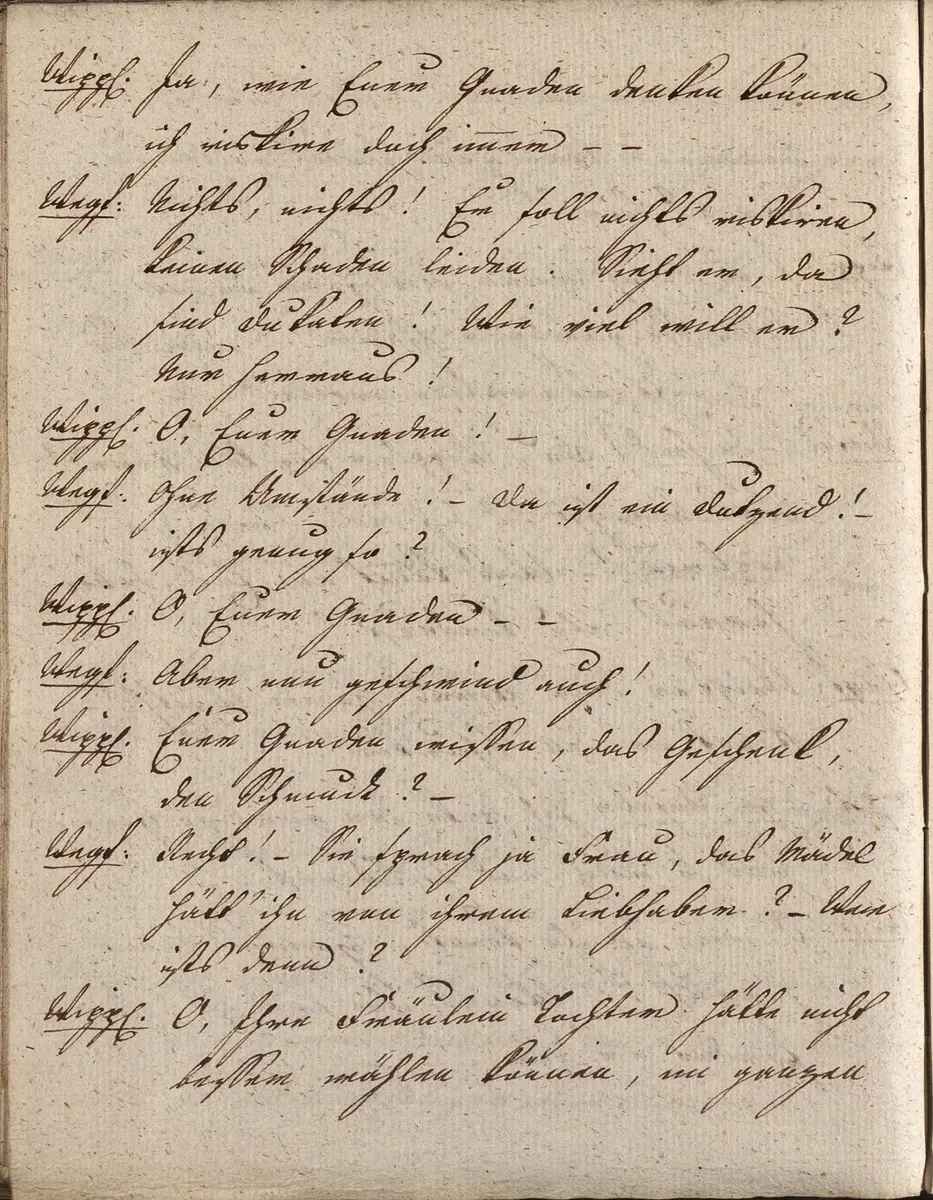 Wippf. Ja, wie Euer Gnaden denken können,
ich riskire doch immer – –
Wegf: Nichts, nichts! Er soll nichts riskiren,
keinen Schaden leiden. Sieht er, da
sind Dukaten! Wie viel will er?
Nur herraus!
Wippf. O, Euer Gnaden! –
Wegf. Ohne Umstände! – Da ist ein Dutzend! –
ists genug so?
Wippf. O, Euer Gnaden – –
Wegf: Aber nun geschwind auch!
Wippf. Euer Gnaden wissen, das Geschenk,
den Schmuck? –
Wegf: Recht! – Sie sprach ja Frau, das Mädel
hätt' ihn von ihrem Liebhaber? – Wer
ists denn?
Wippf. O, Ihre Fräulein Tochter hätte nicht
besser wählen können, im ganzen